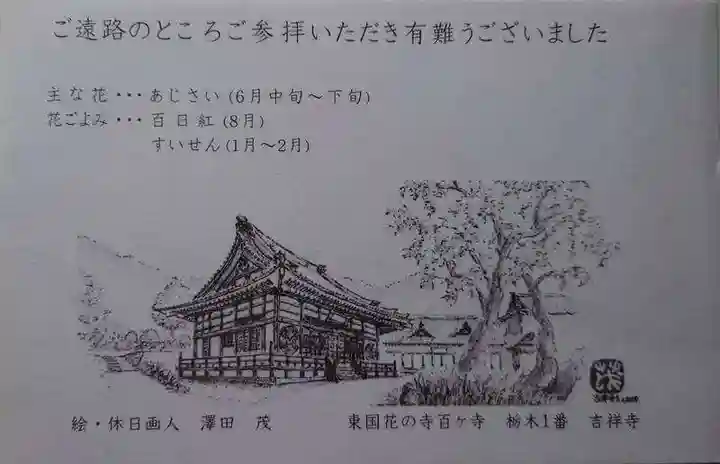 ご遠路のところご参拝いただき有難うございました
主な花・・・あじさい(6月中旬～下旬)
花ごよみ・・・百日紅(8月)
すいせん(1月～2月)
絵・休日画人 澤田 茂
東国花の寺百ヶ寺 栃木1番 吉祥寺